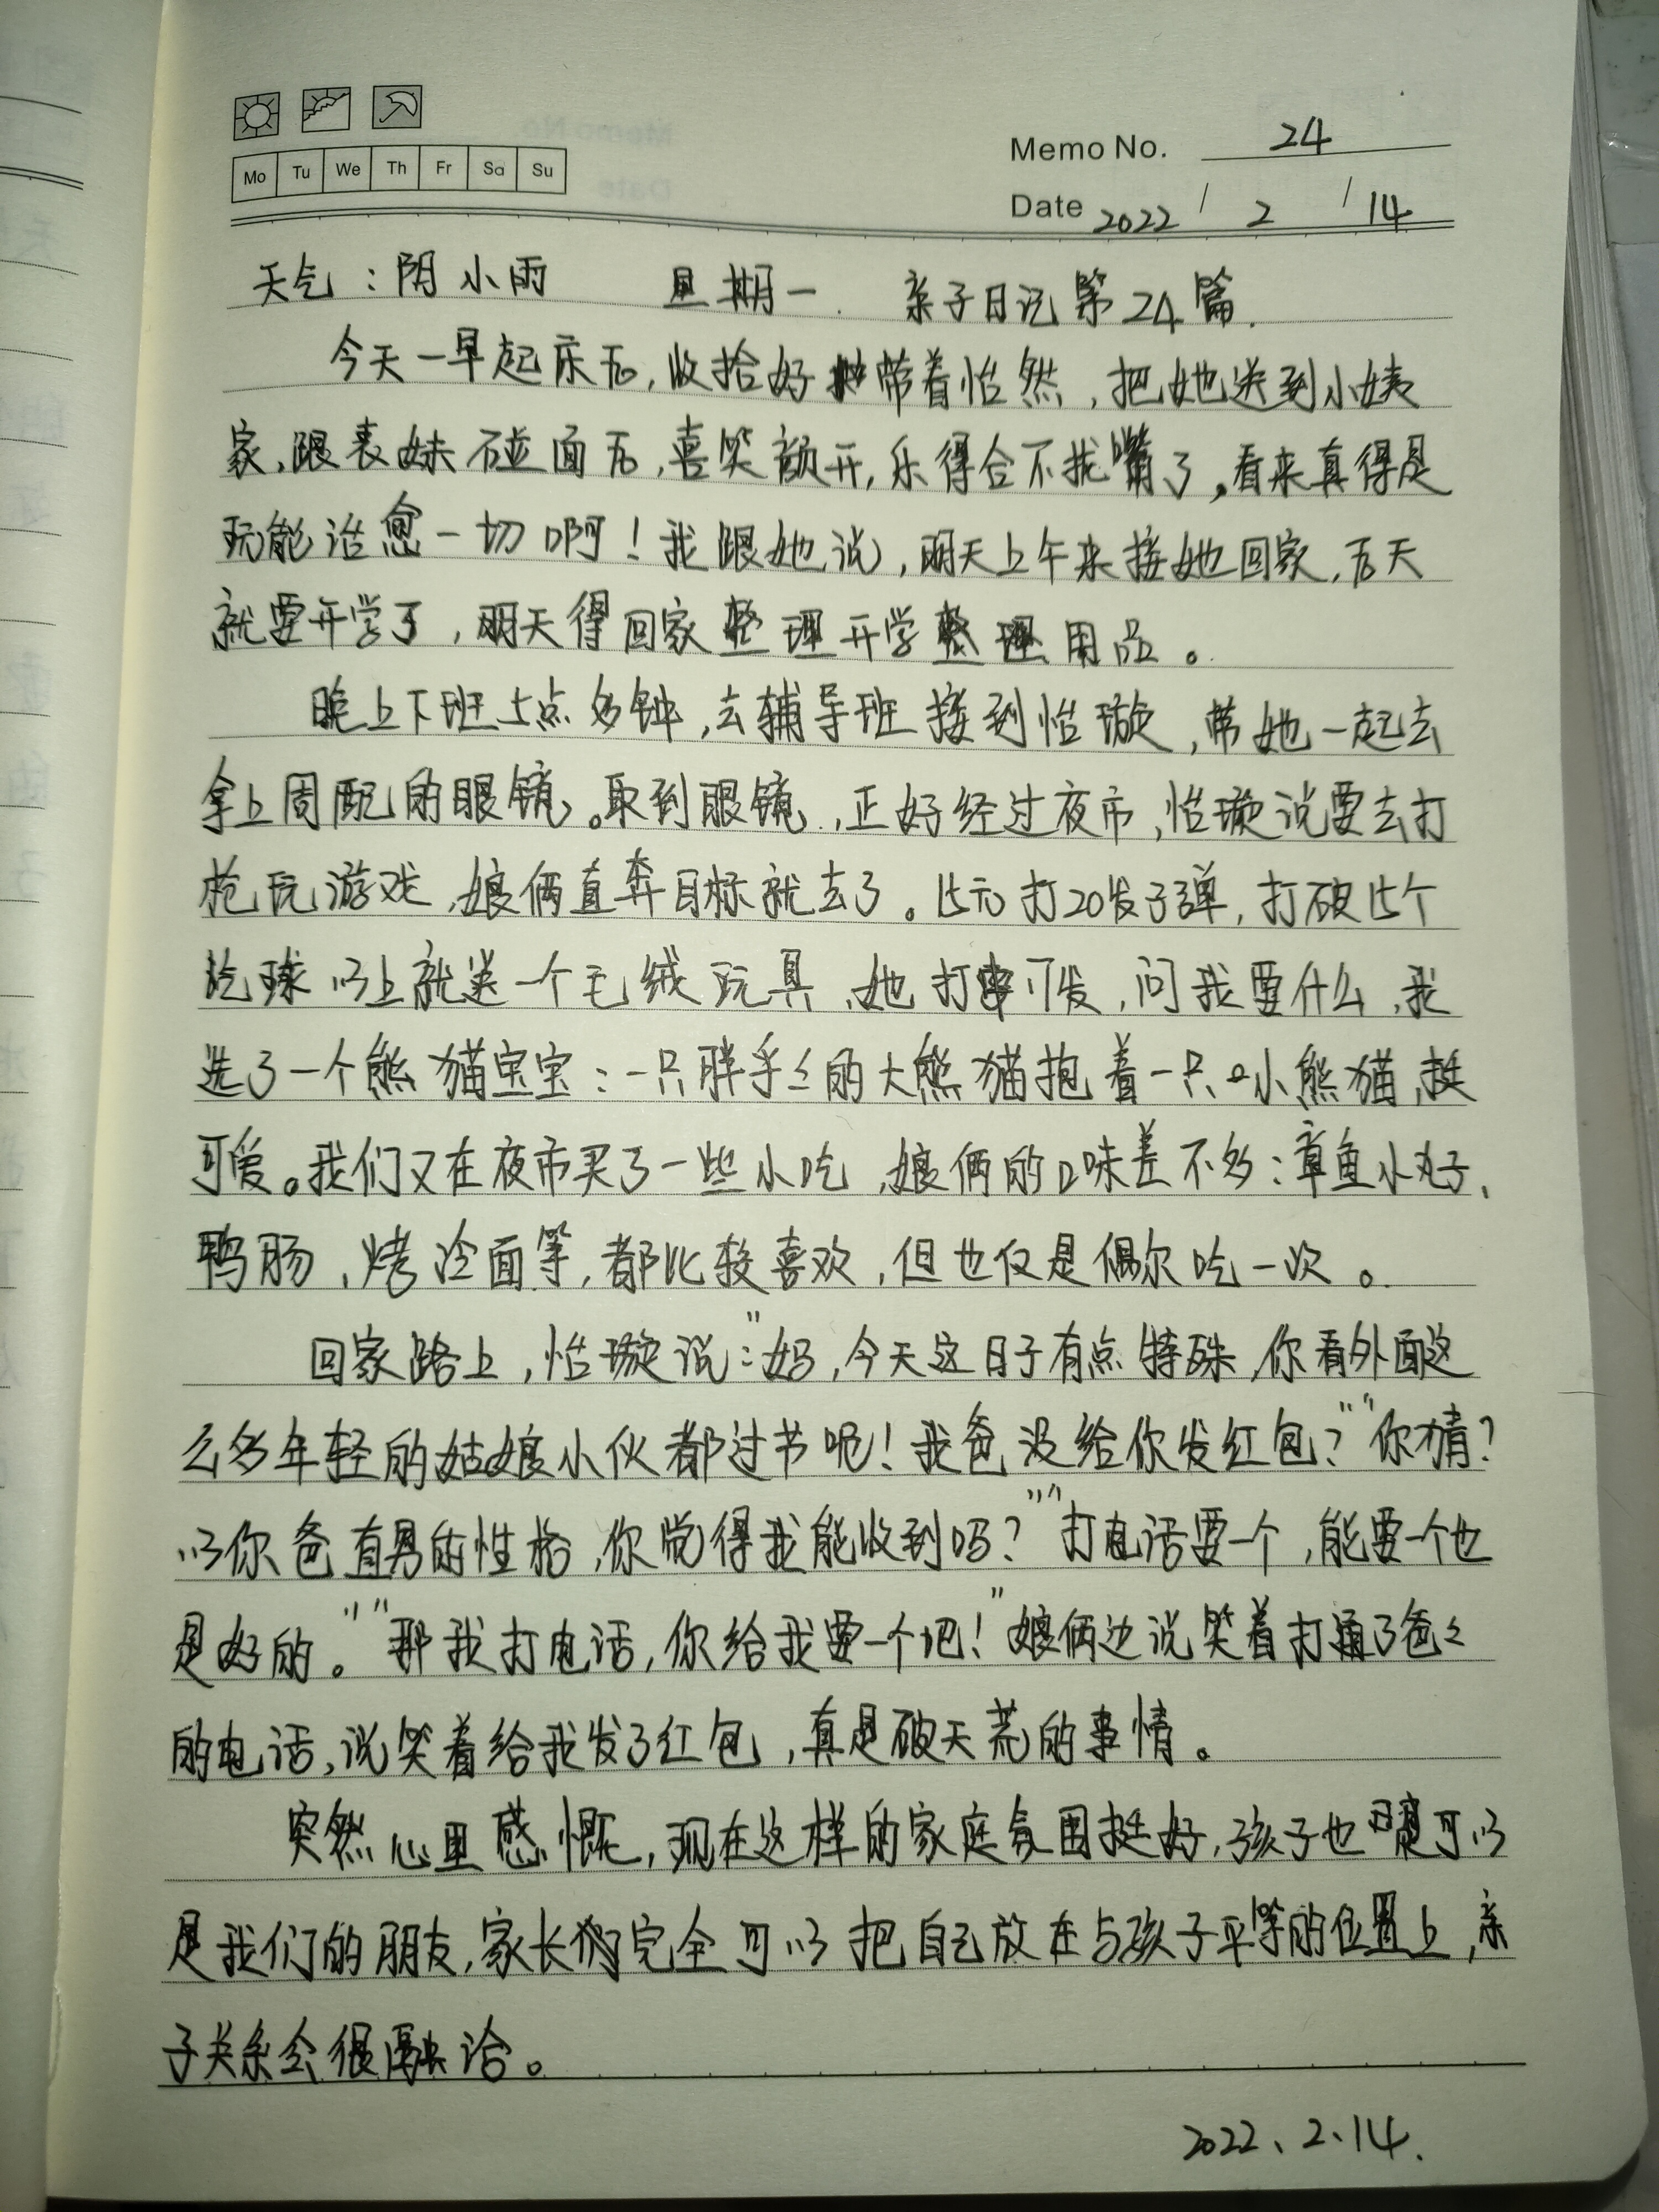 Mo Tu We Th Fr Sa Su
Memo No. 24
Date 2022 / 2 / 14
天气：阴 小雨 星期一. 亲子日记第24篇.
今天一早起床后，收拾好带着怡然，把她送到小姨
家，跟表妹碰面后，喜笑颜开，乐得合不拢嘴了，看来真得是
玩能治愈一切啊！我跟她说，明天上午来接她回家，后天
就要开学了，明天得回家整理开学整理用品。
晚上下班5点多钟，去辅导班接到怡璇，带她一起去
拿上周配的眼镜。取到眼镜，正好经过夜市，怡璇说要去打
枪玩游戏，娘俩直奔目标就去了。15元打20发子弹，打破15个
气球以上就送一个毛绒玩具，她打中17发，问我要什么，我
选了一个熊猫宝宝：一只胖乎乎的大熊猫抱着一只小熊猫，挺
可爱。我们又在夜市买了一些小吃，娘俩的口味差不多：章鱼小丸子、
鸭肠、烤冷面等，都比较喜欢，但也仅是偶尔吃一次。
回家路上，怡璇说：“妈，今天这日子有点特殊，你看外面这
么多年轻的姑娘小伙都过节呢！我爸没给你发红包？”“你猜？
以你爸直男的性格，你觉得我能收到吗？”“打电话要一个，能要一个也
是好的。”“那我打电话，你给我要一个吧！”娘俩边说笑着打通了爸爸
的电话，说笑着给我发了红包，真是破天荒的事情。
突然心里感慨，现在这样的家庭氛围挺好，孩子也可以
是我们的朋友，家长们完全可以把自己放在与孩子平等的位置上，亲
子关系会很融洽。
2022、2、14.